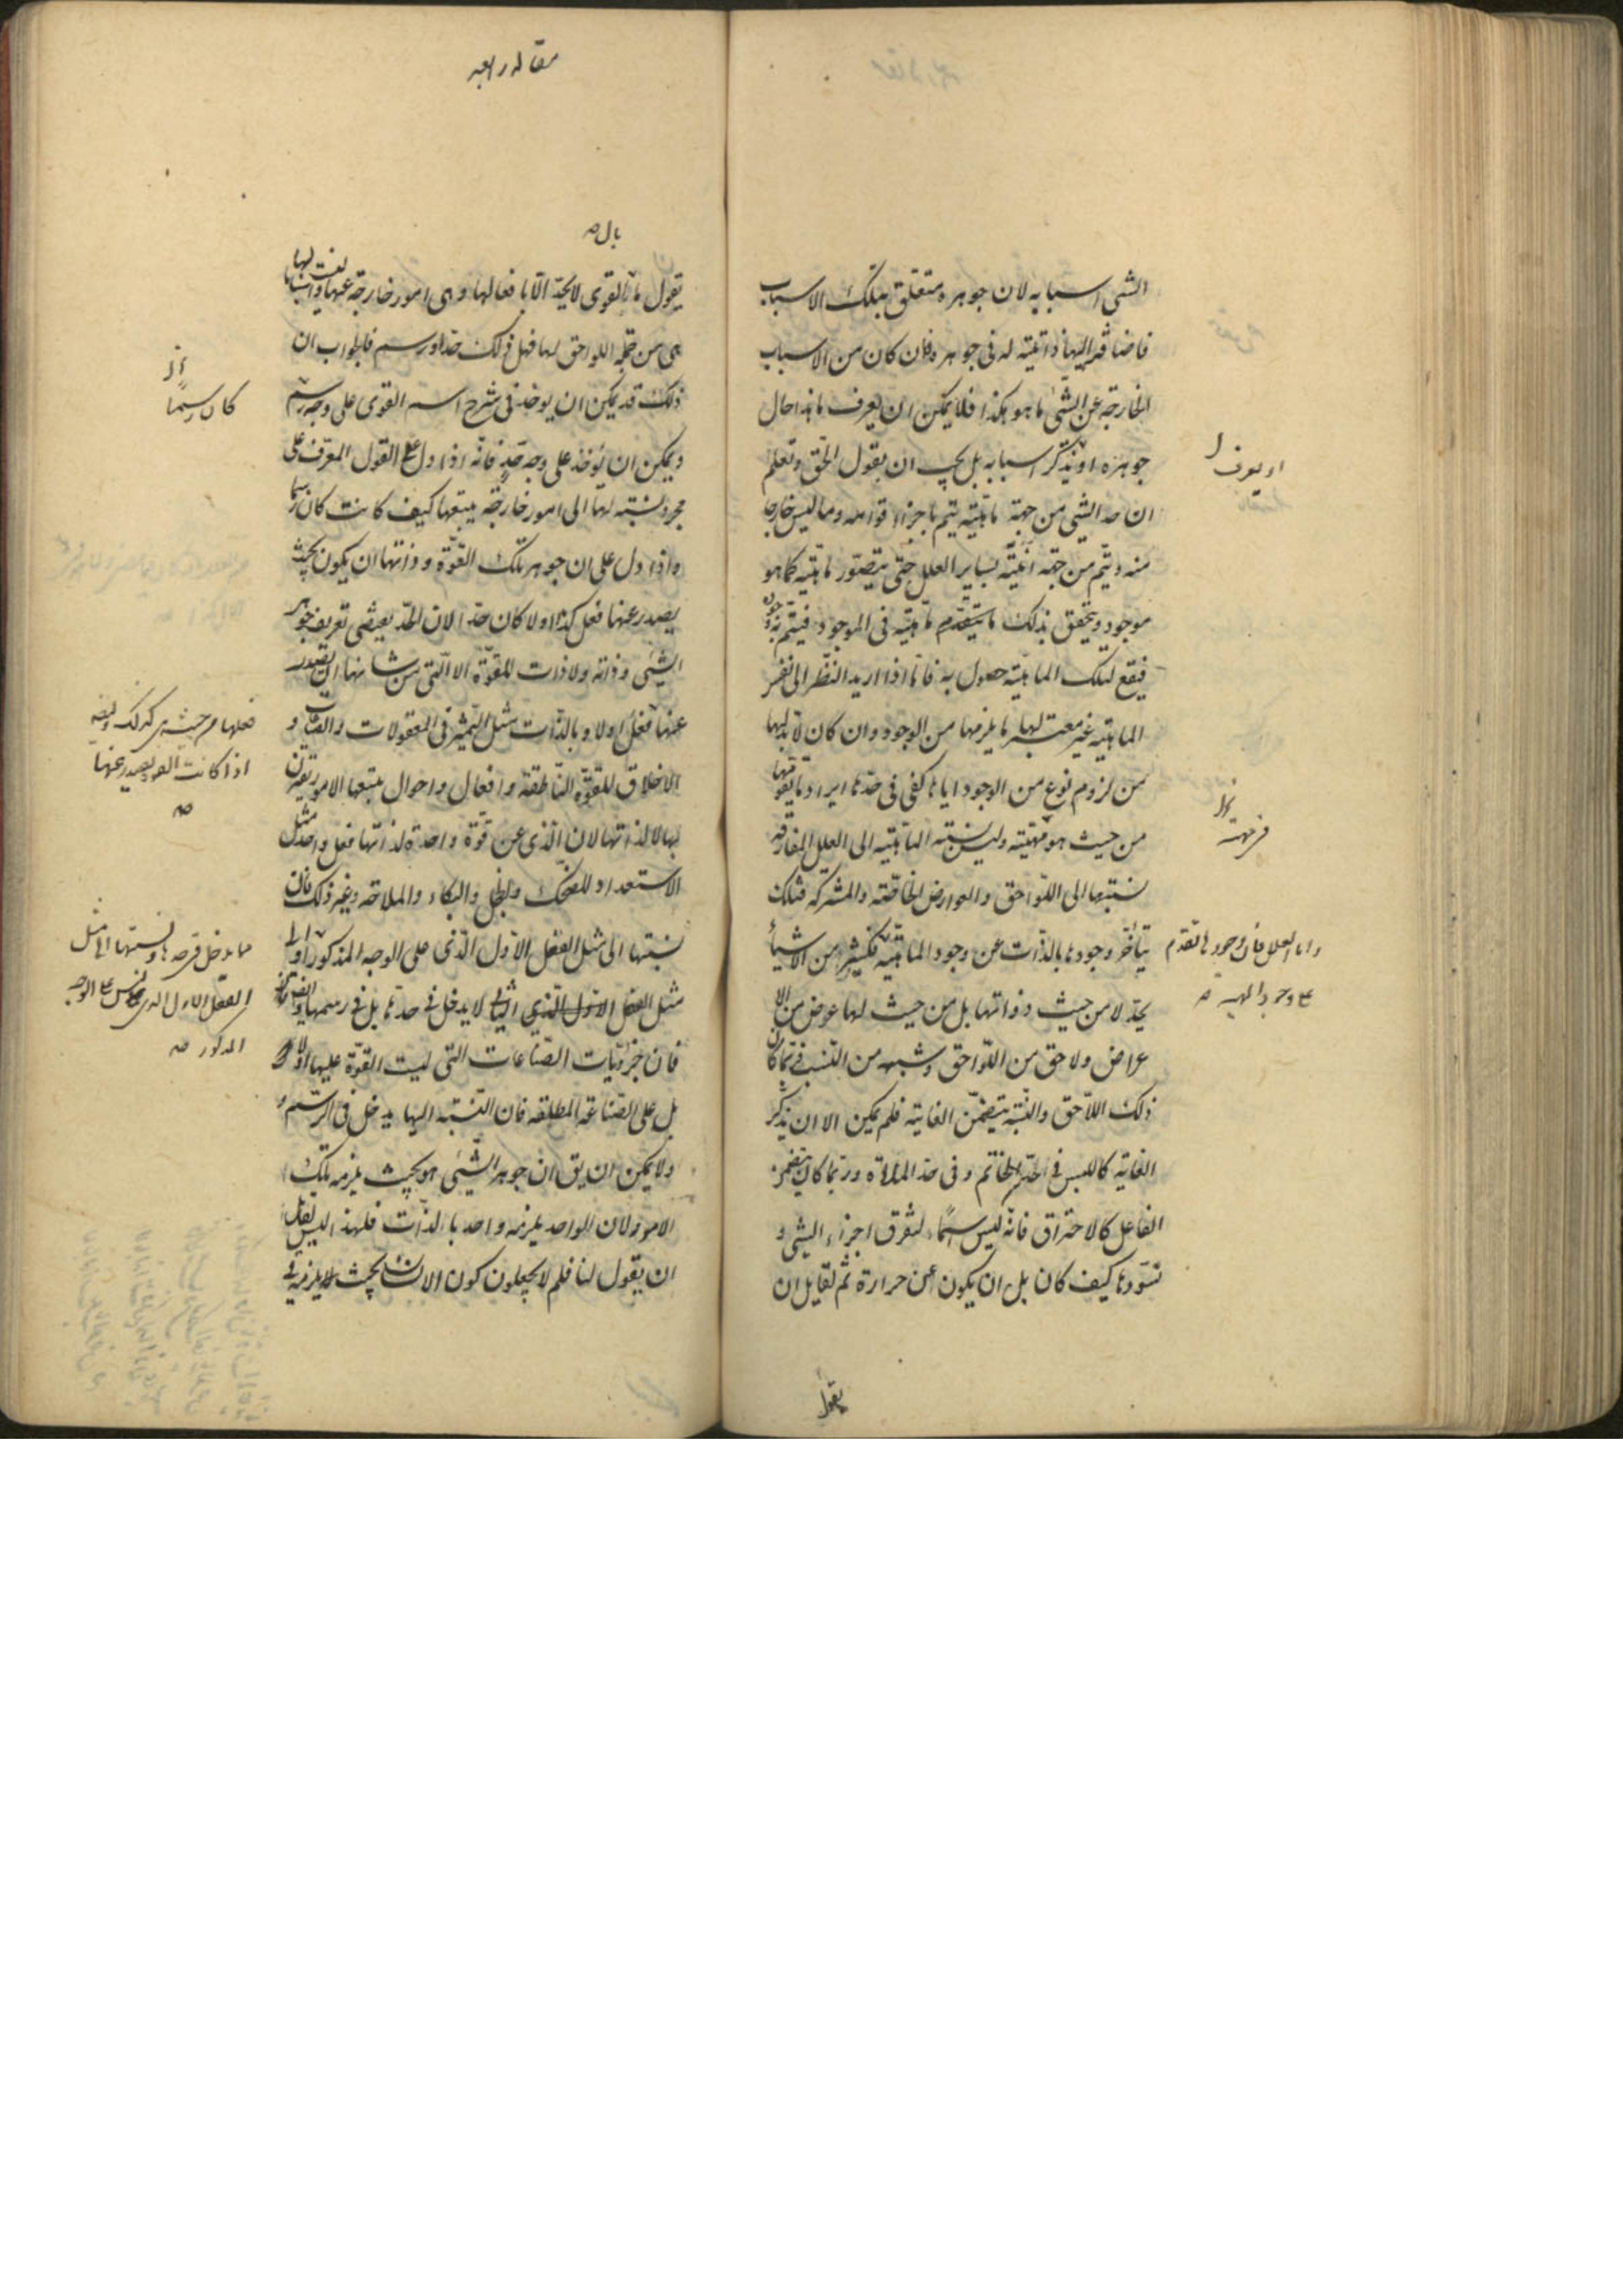 الشئ اسبابه لان جوهره متعلق بتلك الاسباب
فاضافته اليها ذاتية له فى جوهره فان كان من الاسباب
الخارجة عن الشئ ما هو هكذا فلا يمكن ان يعرف ما هذا حال
جوهره او تذكر اسبابه بل يجب ان يقول الحق وتعلم
ان حد الشئ من جهة ماهيته يتم باجزاء قوامه وما ليس خارجا
منه ويتم من جهة انيته بساير العلل حتى يتصور ماهيته كما هو
موجود ويتحقق بذلك ما يتقدم ماهيته فى الموجود فيتم به وجوده
فيقع لتلك الماهية حصول به فانما اذا اريد النظر الى نفس
الماهية غير معتبر لها ما يلزمها من الوجود وان كان لا بد لها
من لزوم نوع من الوجود اياها كفى فى حدها ايراد ما يقومها
من حيث هو مهيته وليس نسبة الماهية الى العلل المفارقة
نسبتها الى اللواحق والعوارض الخاصة والمشتركة فتلك
يتأخر وجودها بالذات عن وجود الماهية فكثير من الاشيأ
يحد لا من حيث ذواتها بل من حيث لها عرض من الا
عراض ولاحق من اللواحق وشبهه من النسب فربما كان
ذلك اللاحق والنسبة يتضمن الغاية فلم يمكن الا ان يذكر
الغاية كاللبس فى حد الخاتم وفى حد الملاءة وربما كان يتضمن
الفاعل كالاحتراق فانه ليس اسما لتفرق اجزاء الشئ و
تسودها كيف كان بل ان يكون عن حرارة ثم لقايل ان
يقول
او يعرف
من جهة
واما العلل فان وجودها تقدم
على وجود المهية صح
مقاله رابعه
بال صح
يقول ما القوى لا يحد الا بافعالها وهى امور خارجة عنها
هى من جملة اللواحق لها فهل ذلك حد او رسم فالجواب ان
ذلك قد يمكن ان يوخذ فى شرح اسم القوى على وجه رسم
ويمكن ان يوخذ على وجه حد فانه اذا دل القول المعرف على
مجرد نسبة لها الى امور خارجة يتبعها كيف كانت كان رسما
واذا دل على ان جوهر تلك القوة وذاتها ان يكون بحيث
يصدر عنها فعل كذا اولا كان حدا لان الحد يعطى تعريف جوهر
الشئ وذاته ولا ذات للقوة الا التى من شانها ان يصدر
عنها فعل اولا وبالذات مثل التميز فى المعقولات
الاخلاق للقوة الناطقة وافعال واحوال يتبعها الامور تقرن
بها لا لذاتها لان الذى عن قوة واحدة لذاتها فعل واحد مثل
الاستعداد للضحك والخجل والبكاء والملاحة وغير ذلك فان
نسبتها الى مثل الفعل الاول الذى على الوجه المذكور
مثل الفعل الاول الذى لا يدخل فى حدها بل فى رسمها
فان جزئيات الصناعات التى ليست القوة عليها اولا
بل على الصناعة المطلقة فان النسبة اليها يدخل فى الرسم و
ولا يمكن ان يق ان جوهر الشئ هو بحيث يلزمه تلك
الامور لان الواحد يلزمه واحد بالذات فلهذا ليس لقايل
ان يقول لنا فلم لا يجعلون كون الانسان بحيث يلزمه
كان رسما
فعلها من حيث هى كذلك
اذا كانت القوة يصدر عنها
صح
مما يدخل فى حدها ونسبتها الى مثل
الفعل الاول الذى ليس على الوجه
المذكور صح